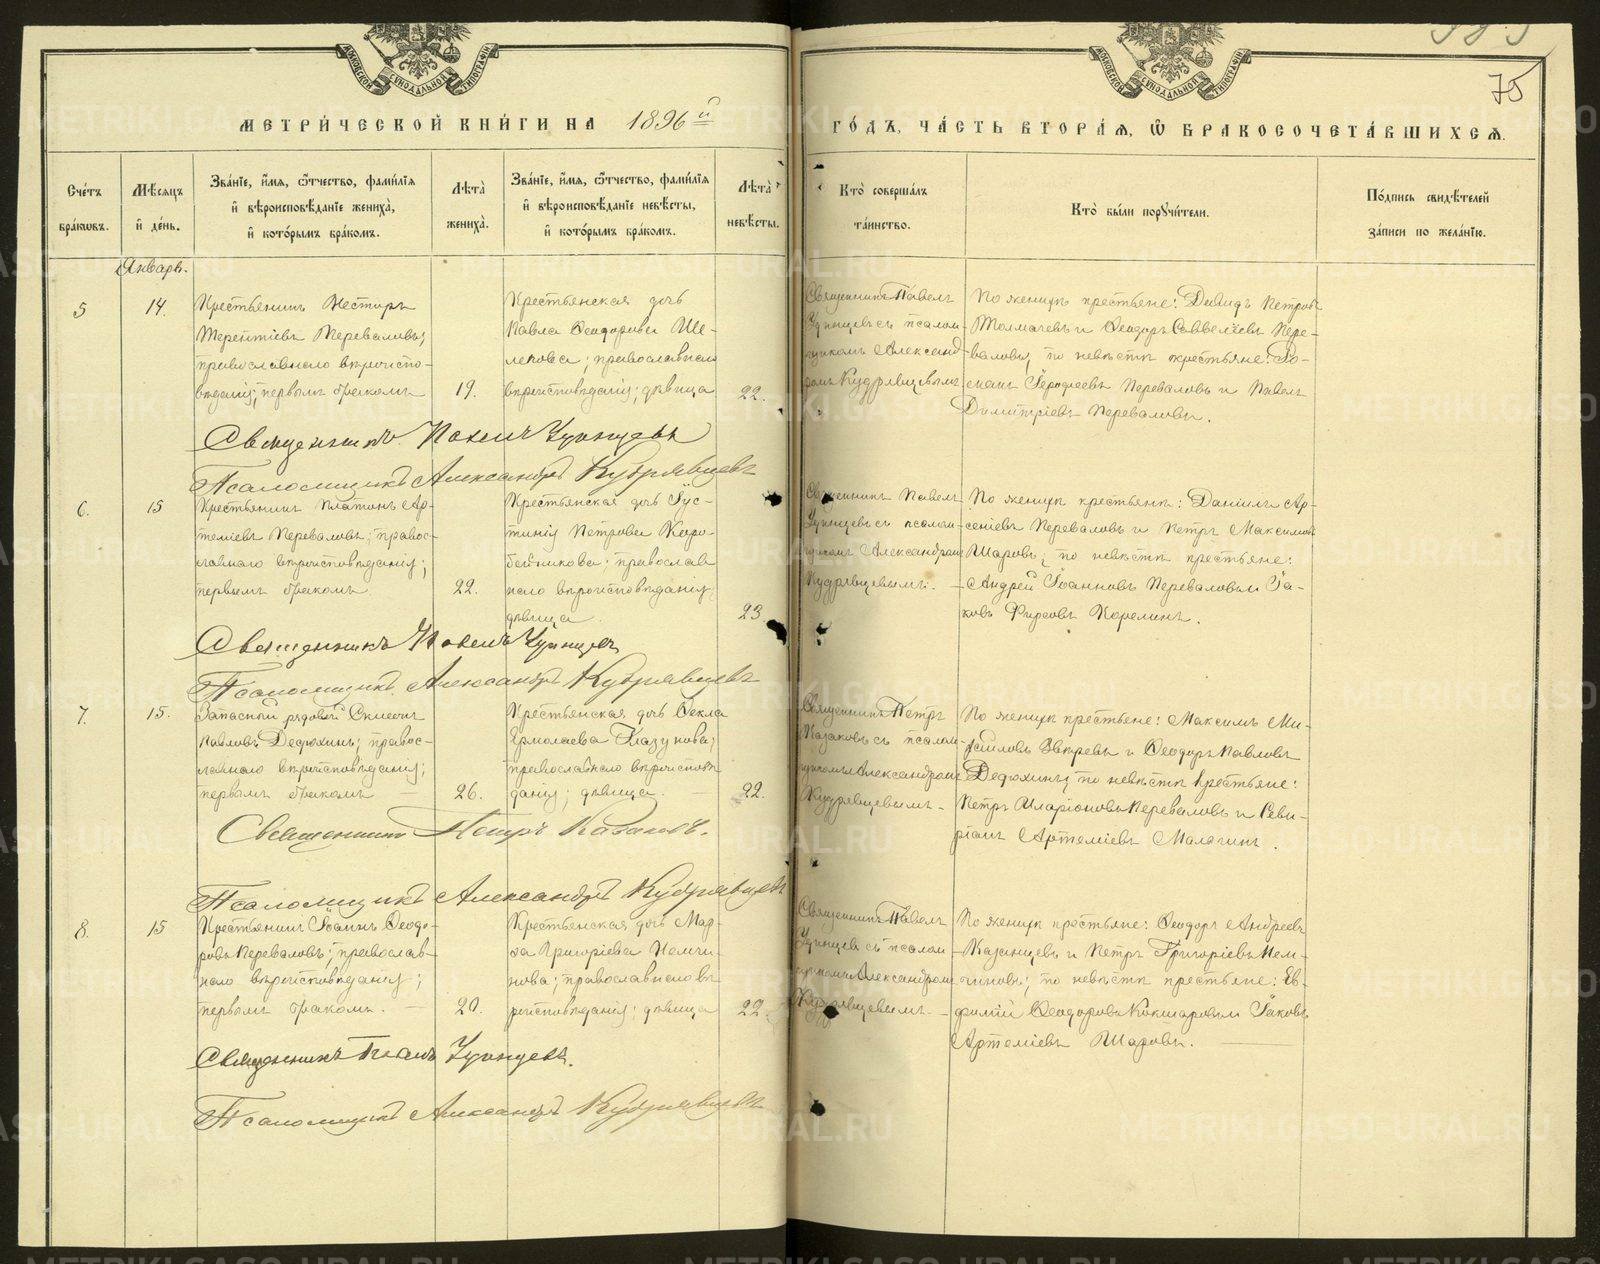 МОСКОВСКОЙ СѴНОДАЛЬНОЙ ТИПОГРАФІИ
МОСКОВСКОЙ СѴНОДАЛЬНОЙ ТИПОГРАФІИ
75
МЕТРИ́ЧЕСКОЙ КНИ́ГИ НА 1896й
ГО́ДЪ, ЧА́СТЬ ВТОРА́Я, Ѡ҆ БРАКОСОЧЕТА́ВШИХСѦ.
Сче́тъ бра́кѡвъ.
Мѣ́сѧцъ и҆ де́нь.
Зва́нїе, и҆́мѧ, ѻ҆́тчество, фами́лїѧ и҆ вѣроисповѣ́данїе жениха̀, и҆ кото́рымъ бра́комъ.
Лѣ́та̀ жениха̀.
Зва́нїе, и҆́мѧ, ѻ҆́тчество, фами́лїѧ и҆ вѣроисповѣ́данїе невѣ́сты, и҆ кото́рымъ бра́комъ.
Лѣ́та̀ невѣ́сты.
Кто̀ соверша́лъ та́инство.
Кто̀ бы́ли поручи́тели.
По́дпись свидѣ́телей за́писи по жела́нїю.
Январь.
5
14.
Крестьянинъ Несторъ
Терентіевъ Переваловъ;
православнаго вѣроиспо-
вѣданія; первымъ бракомъ
19.
Крестьянская дочь
Павла Ѳеодорова Ше-
лепова; православнаго
вѣроисповѣданія; дѣвица
22.
Священникъ Павелъ
Удинцевъ съ псалом-
щикомъ Александ-
ромъ Кудрявцевымъ
По женихѣ крестьяне: Давидъ Петровъ
Толмачевъ и Ѳеодоръ Савельевъ Пере-
валовъ; по невѣстѣ крестьяне: Ро-
манъ Іероѳеевъ Переваловъ и Павелъ
Димитріевъ Переваловъ.
Священникъ Павелъ Удинцевъ
Псаломщикъ Александръ Кудрявцевъ
6.
15
Крестьянинъ Платонъ Ар-
теміевъ Переваловъ; правос-
лавнаго вѣроисповѣданія;
первымъ бракомъ
22.
Крестьянская дочь Іус-
тинія Петрова Коро-
бейникова; православ
наго вѣроисповѣданія;
дѣвица.
23
Священникъ Павелъ
Удинцевъ съ псалом-
щикомъ Александромъ
Кудрявцевымъ. —
По женихѣ крестьяне: Даніилъ Ар-
сеніевъ Переваловъ и Петръ Максимовъ
Шаровъ; по невѣстѣ крестьяне:
Андрей Іоанновъ Переваловъ и Іа-
ковъ Фирсовъ Корелинъ.
Священникъ Павелъ Удинцевъ
Псаломщикъ Александръ Кудрявцевъ
7.
15.
Запасный рядовой Симеонъ
Павловъ Дедюхинъ; правос-
лавнаго вѣроисповѣданія;
первымъ бракомъ —
26.
Крестьянская дочь Ѳекла
Ермолаева Глазунова;
православнаго вѣроисповѣ
данія; дѣвица. —
22.
Священникъ Петръ
Казаковъ съ псалом-
щикомъ Александромъ
Кудрявцевымъ. —
По женихѣ крестьяне: Максимъ Ми-
хайловъ и Ѳеодоръ Павловъ
Дедюхинъ; по невѣстѣ крестьяне:
Петръ Иларіоновъ Переваловъ и Севи-
ріанъ Артеміевъ Малагинъ.
Священникъ Петръ Казаковъ.
Псаломщикъ Александръ Кудрявцевъ
8.
15
Крестьянинъ Іоаннъ Ѳеодо-
ровъ Переваловъ; православ-
наго вѣроисповѣданія;
первымъ бракомъ. —
20.
Крестьянская дочь Мар-
ѳа Григоріева Немчи-
нова; православнаго вѣ
роисповѣданія; дѣвица
22.
Священникъ Павелъ
Удинцевъ съ псалом
щикомъ Александромъ
Кудрявцевымъ. —
По женихѣ крестьяне: Ѳеодоръ Андреевъ
Казанцевъ и Петръ Григоріевъ Нем-
чиновъ; по невѣстѣ крестьяне: Ев-
фимій Ѳеодоровъ Кокшаровъ и Іаковъ
Артеміевъ Шаровъ. —
Священникъ Павелъ Удинцевъ.
Псаломщикъ Александръ Кудрявцевъ
METRIKI.GASO-URAL.RU